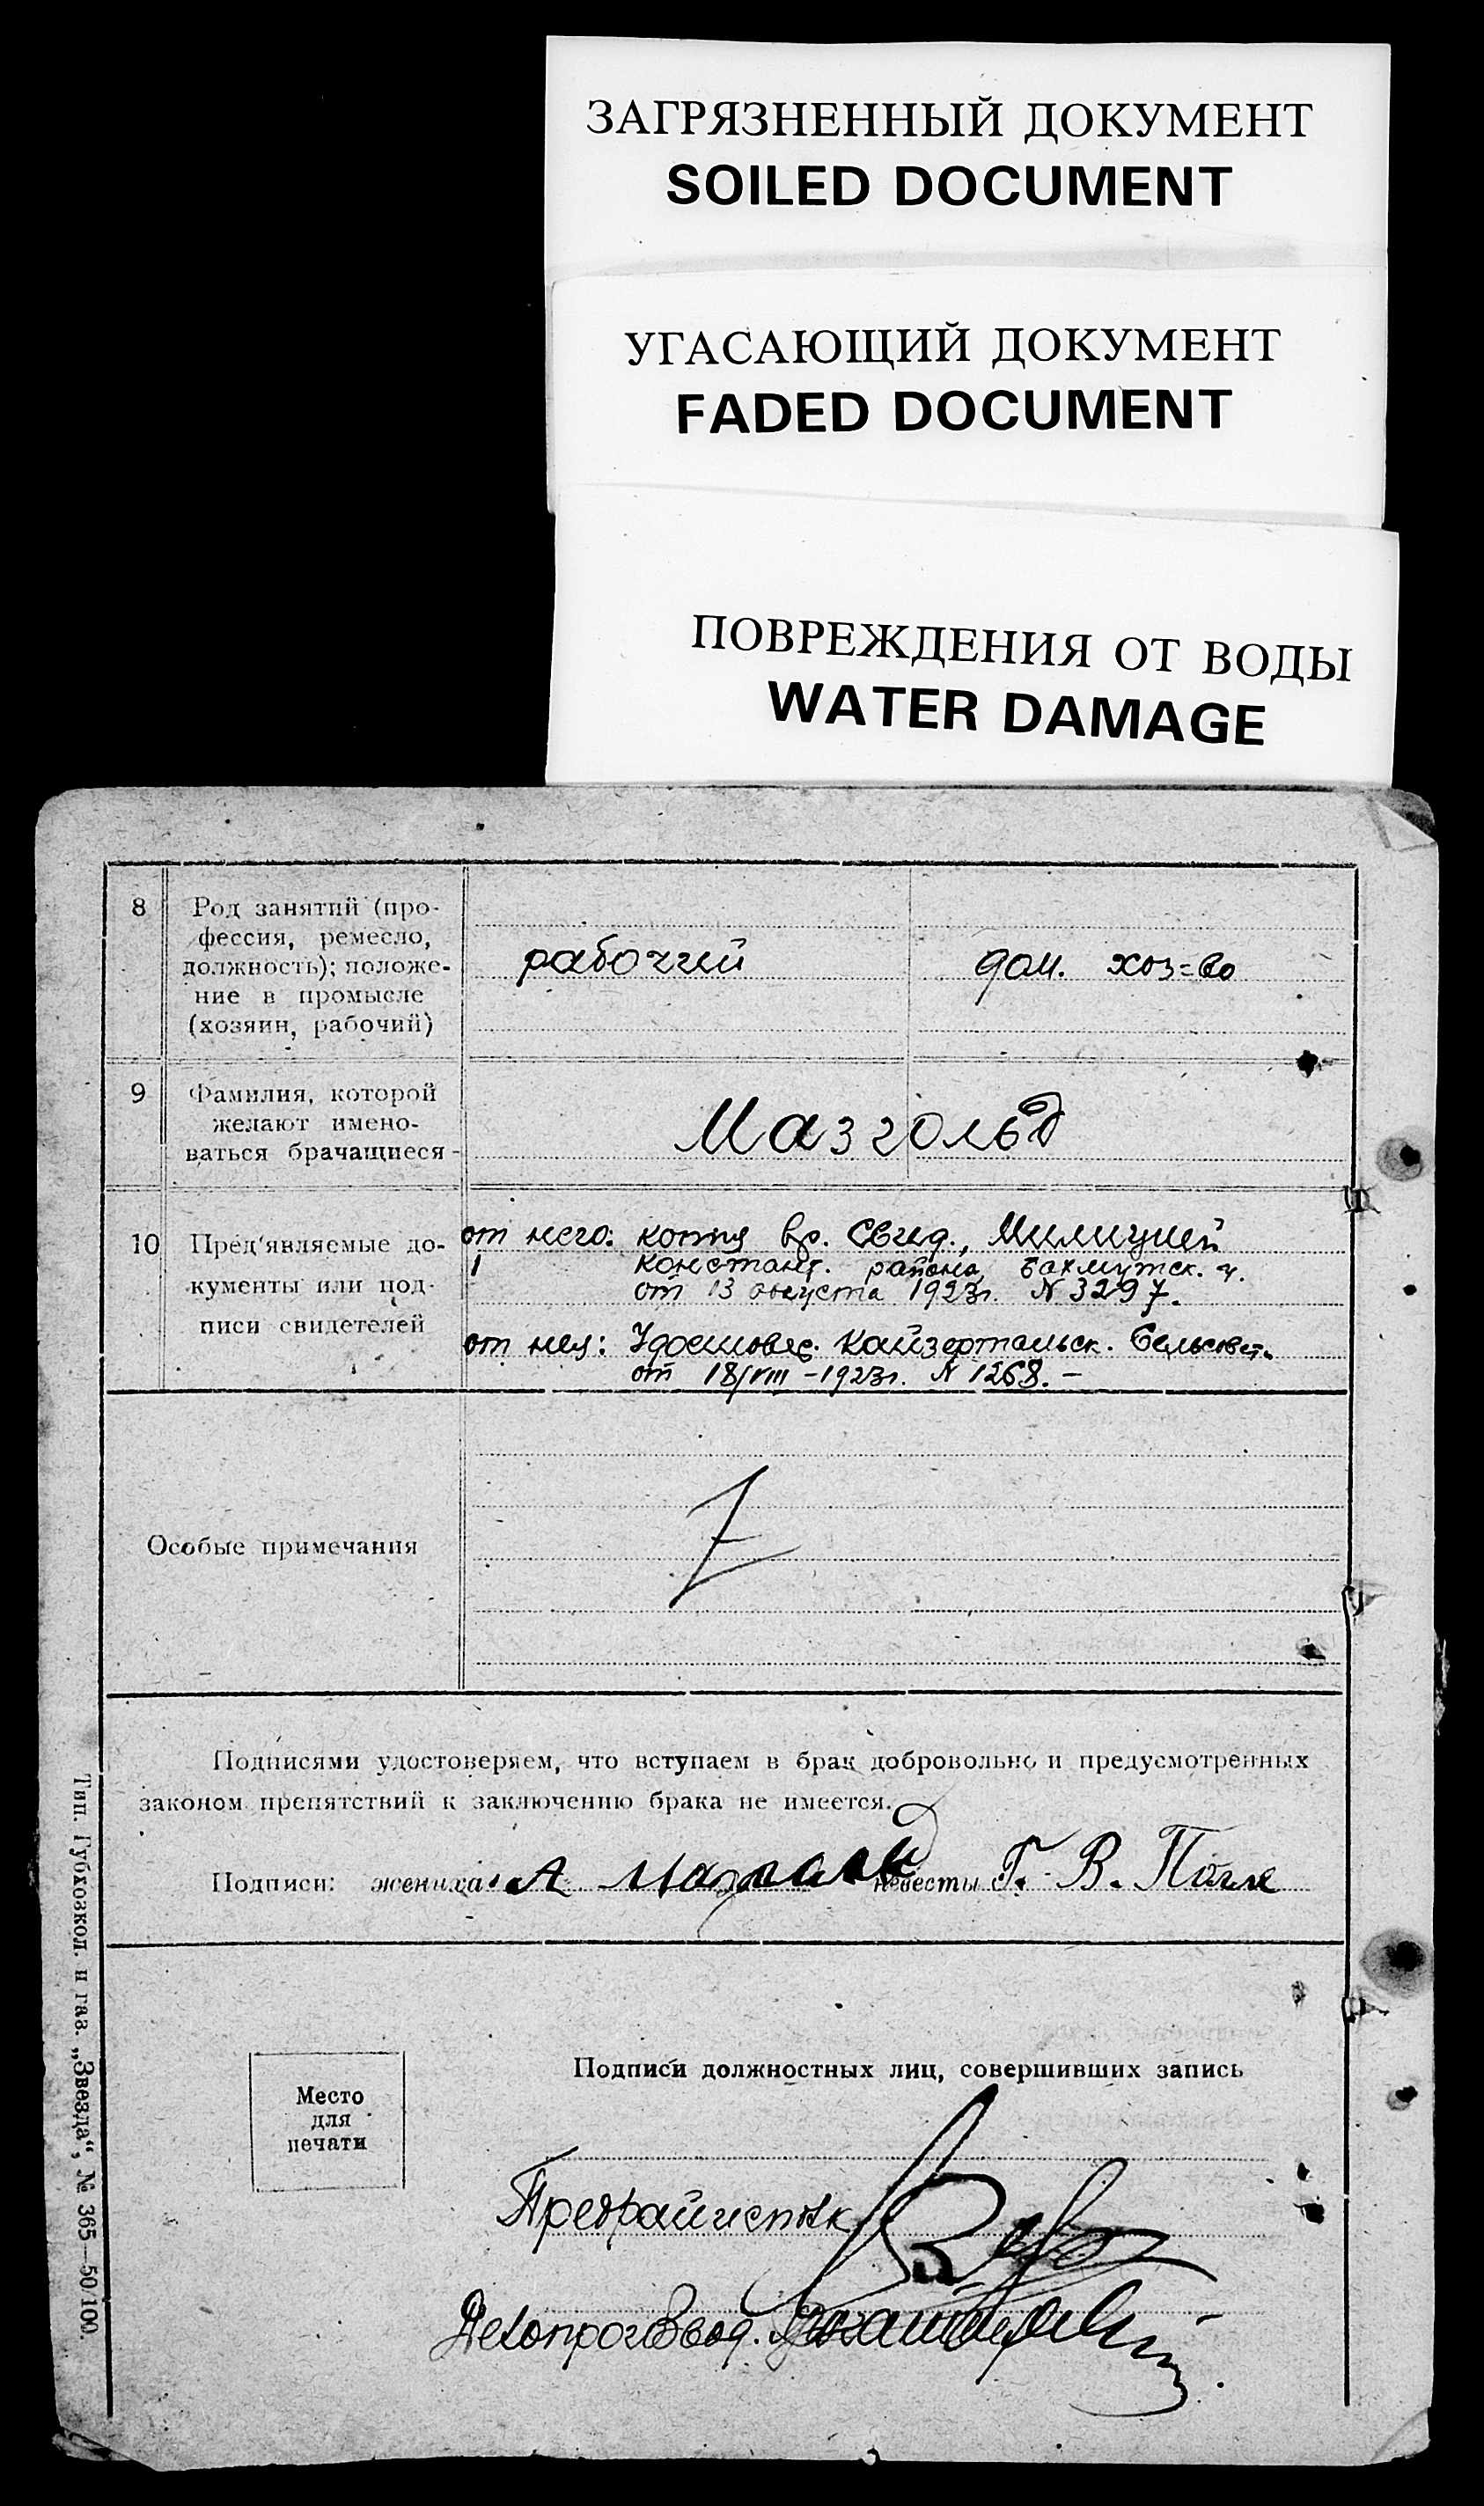 ЗАГРЯЗНЕННЫЙ ДОКУМЕНТ
SOILED DOCUMENT
УГАСАЮЩИЙ ДОКУМЕНТ
FADED DOCUMENT
ПОВРЕЖДЕНИЯ ОТ ВОДЫ
WATER DAMAGE
8 Род занятий (про-
фессия, ремесло,
должность); положе-
ние в промысле
(хозяин, рабочий)
рабочий
дом. хоз=во
9 Фамилия, которой
желают имено-
ваться брачащиеся
Мазгольд
10 Пред'являемые до-
кументы или под-
писи свидетелей
от него: копия вр. Свид., Милицией
Констант. района Бахмутск. у.
от 13 августа 1923г. N 3297.
от нея: Удостовер. Кайзертальск. Сельсовет.
от 18/VIII - 1923г. N 1268. -
Особые примечания
Z
Подписями удостоверяем, что вступаем в брак добровольно и предусмотренных
законом препятствий к заключению брака не имеется.
Подписи: жениха А Мазгольд невесты Г. В. Полле
Место
для
печати
Подписи должностных лиц, совершивших запись
Предрайисполк
Делопроизвод.
Тип. Губкозкол. и газ. „Звезда“, № 365—50/100.